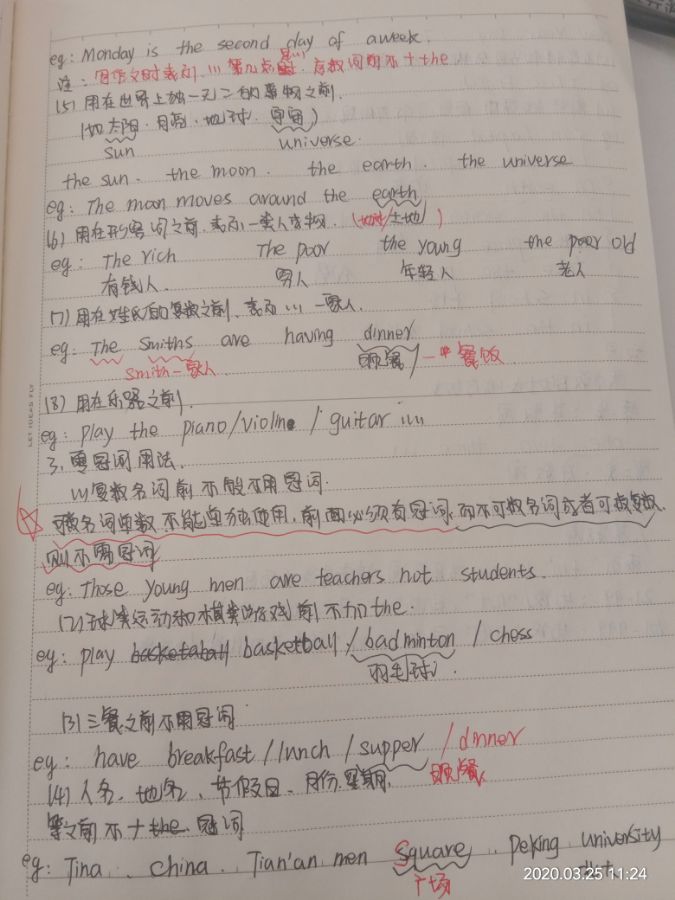 eg: Monday is the second day of a week.
注: 用作文时表示 ... 第几点时, 序数词前不 + the
(5) 用在世界上独一无二的事物之前.
(如太阳、月亮、地球、宇宙)
sun universe.
the sun. the moon. the earth. the universe
eg: The moon moves around the earth
(6) 用在形容词之前, 表示一类人事物. (地球/土地)
eg: The rich The poor the young the poor old
有钱人. 穷人 年轻人 老人
(7) 用在姓氏的复数之前, 表示 ... 一家人.
eg: The Smiths are having dinner
Smith一家人 正餐
(8) 用在乐器之前.
eg: play the piano/violin / guitar ....
LET IDEAS FLY
3. 零冠词用法.
(1) 复数名词前不能用冠词.
可数名词单数不能单独使用, 前面必须有冠词, 而不可数名词或者可数复数,
则不需冠词
eg: Those young men are teachers not students.
(2) 球类运动和棋类游戏前不加 the.
eg: play basketaball basketball / badminton / chess
羽毛球
(3) 三餐之前不用冠词
eg: have breakfast / lunch / supper / dinner
(4) 人名、地名、节假日、月份. 星期. 正餐
等之前不 + the 冠词
eg: Tina .. china .. Tian'an men Square .. Peking university
广场
2020.03.25 11:24